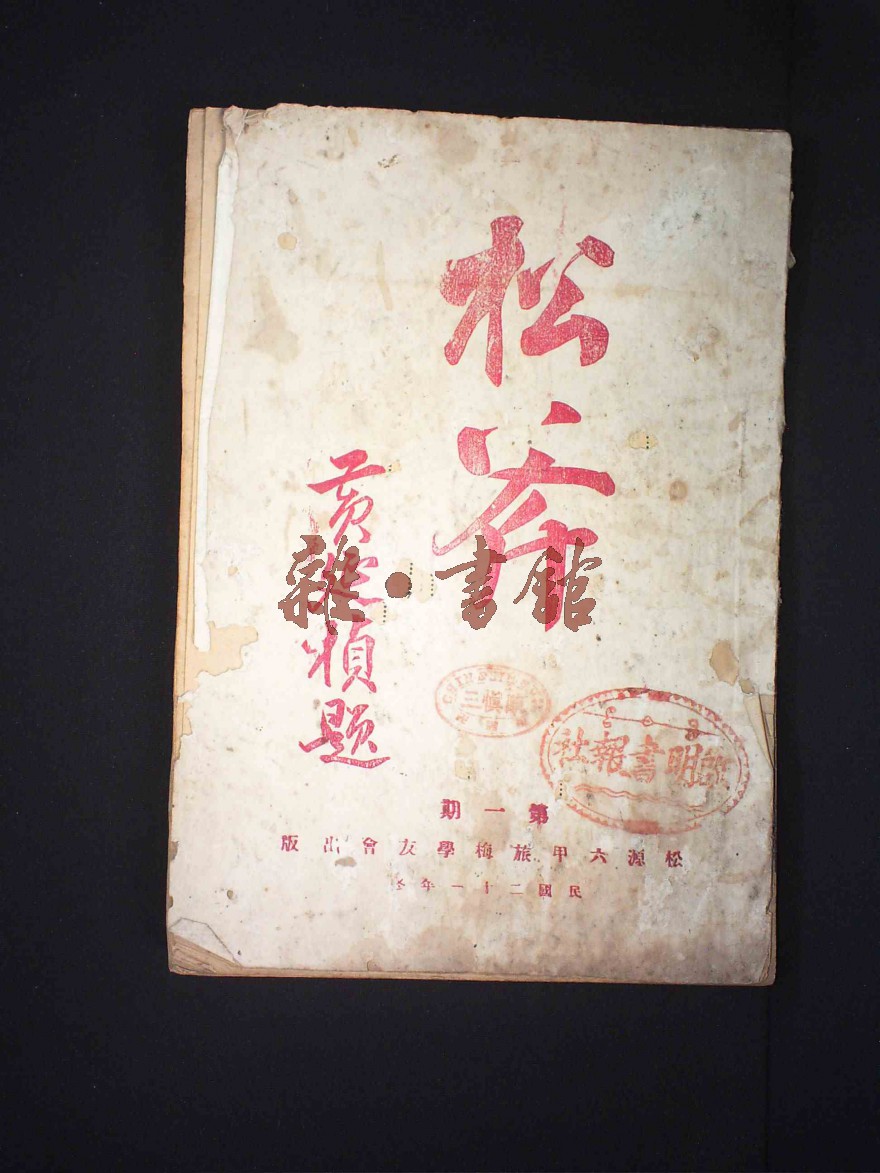 松斧
黃題
雜·書館
明書報社
第一期
松源六甲旅梅學友會出版
民國二十一年